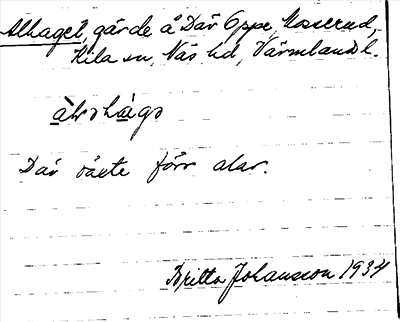 Alhaget, gärde å Där Oppe, Noserud,
Kila sn, Näs hd, Värmlands l.
Där växte förr alar.
Britta Johansson 1934